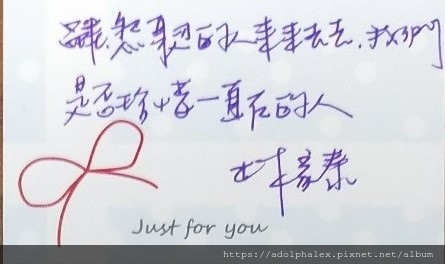 雖然身邊的人來來去去.我們
是否珍惜一直在的人
Just for you
https://adolphalex.pixnet.net/album